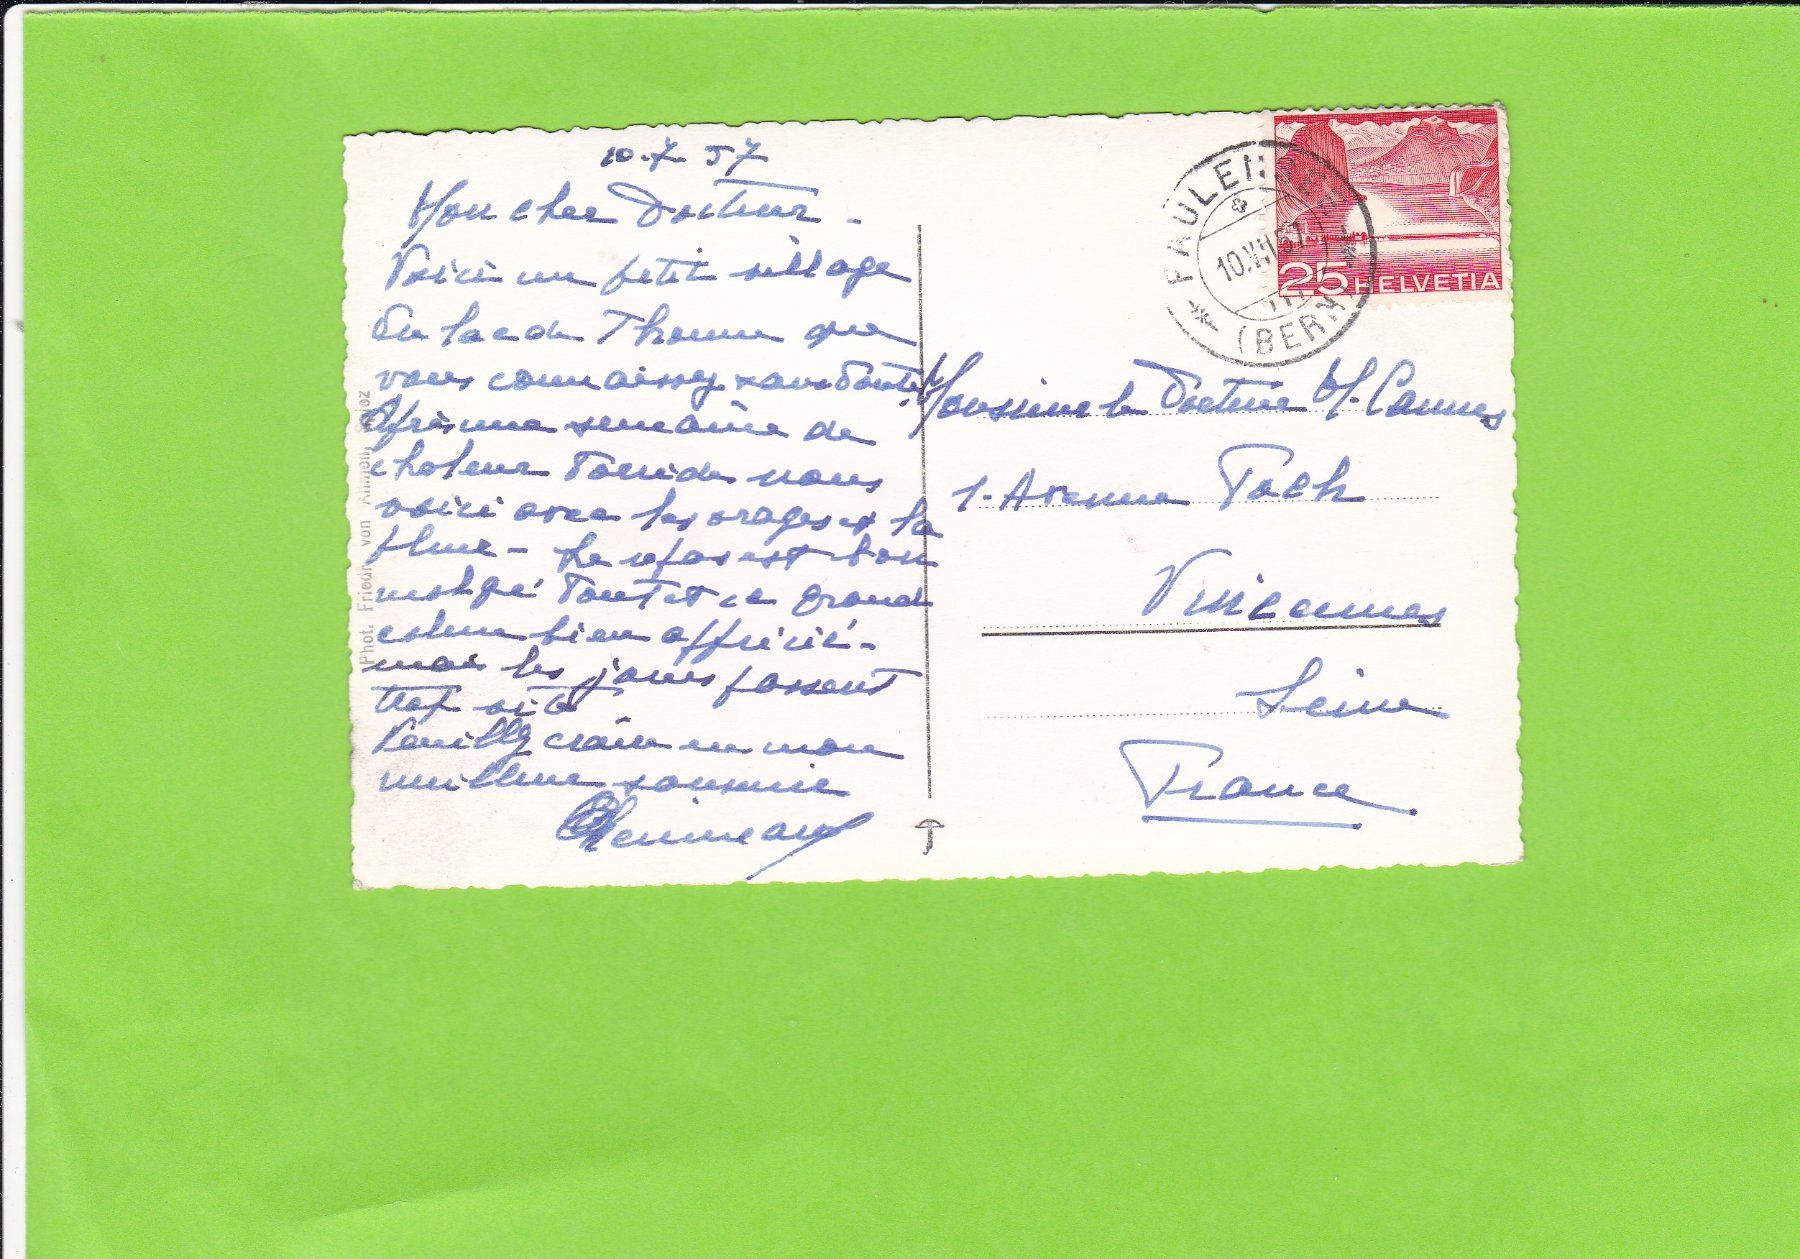 10.7 57
Mon cher Docteur -
Voici un petit village
du lac de Thoune que
vous connaissez sans doute.
Après une semaine de
chaleur torride nous
voici avec les orages et la
pluie - Le repos est bon
malgré tout et ce grand
calme bien apprécié -
mais les jours passent
trop vite
Veuillez croire en mon
meilleur souvenir
Phot. Friedr. von Allmen
FAULENSEE
10.VII.57
(BERN)
25 HELVETIA
Monsieur le Docteur M. Cannes
1. Avenue Foch
Vincennes
Seine
France